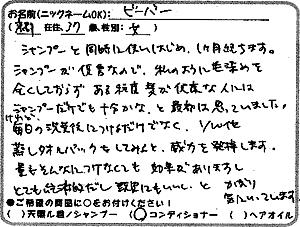 お名前(ニックネームOK): ビーバー
在住、37歳、性別: 女)
シャンプーと同時に使いはじめ、1ヶ月経ちます。
シャンプーが優秀なので、私のように毛染めを
全くしておらず ある程度 髪が健康な人には
シャンプーだけでも十分かな、と最初は思っていました。
けれど、
毎日の洗髪後につけるだけでなく、1/weekで
蒸しタオルパックをしてみると、威力を発揮します。
量もそんなにつけなくても 効果がありますし
とても経済的だし 髪にもいい、と かなり
気に入っています
●ご希望の商品に○をお付けください!
( )天使に恋のシャンプー (○)コンディショナー ( )ヘアオイル